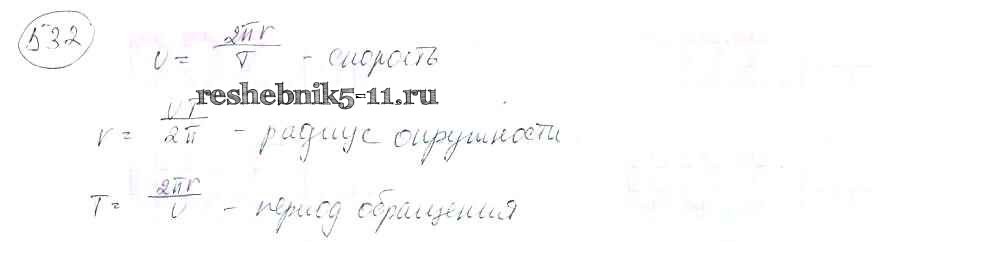 532
υ = 2πr/T - скорость
reshebnik5-11.ru
r = υT/2π - радиус окружности
T = 2πr/υ - период обращения